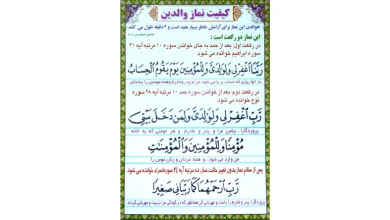 کیفیت نماز والدین
خواندن این نماز برای آرامش خاطر بسیار مفید است و ۲ دقیقه طول می کشد.
این نماز دو رکعت است:
در رکعت اول: بعد از حمد به جای خواندن سوره ۱۰ مرتبه آیه ۴۱
سوره ابراهیم خوانده می شود:
رَبَّنَا اغْفِرْ لِی وَلِوَالِدَیَّ وَلِلْمُؤْمِنِینَ یَوْمَ یَقُومُ الْحِسَابُ
در رکعت دوم: بعد از خواندن سوره حمد ۱۰ مرتبه آیه ۲۸ سوره
نوح خوانده می شود:
رَبِّ اغْفِرْ لِی وَلِوَالِدَیَّ وَلِمَنْ دَخَلَ بَیْتِیَ
پروردگارا، بیامرز مرا و پدر و مادرم و هر مومنی که به خانه
مُؤْمِنًا وَلِلْمُؤْمِنِینَ وَالْمُؤْمِنَاتِ
من وارد می شود. و همه مردان و زنان مومن را
پس از سلام نماز بدون تغییر حالت نماز ده مرتبه آیه ۲۴ سوره اسراء خوانده می شود.
رَبِّ ارْحَمْهُمَا کَمَا رَبَّیَانِی صَغِیرًا